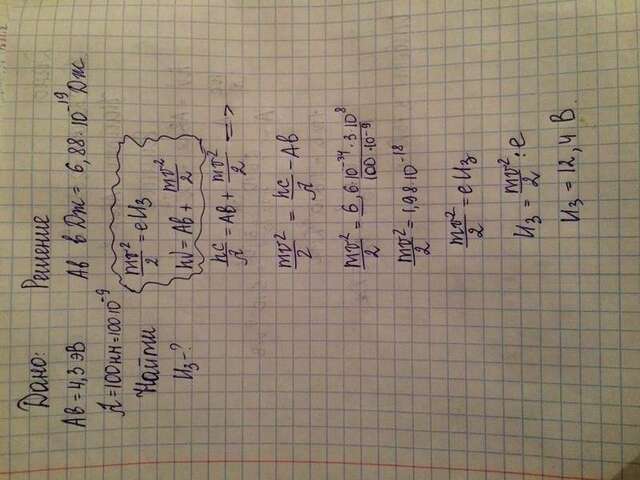 Дано:
Ав = 4,3 эВ
λ = 100нн = 100 10⁻⁹
Найти
Uз - ?
Решение
Ав в Дж = 6,88 · 10⁻¹⁹ Дж.
mv²/2 = eUз
hν = Ав + mv²/2
hc/λ = Ав + mv²/2 =>
mv²/2 = hc/λ - Ав
mv²/2 = 6,6·10⁻³⁴ · 3 10⁸/100·10⁻⁹
mv²/2 = 1,98·10⁻¹⁸
mv²/2 = eUз
Uз = mv²/2 : e
Uз = 12,4 В.